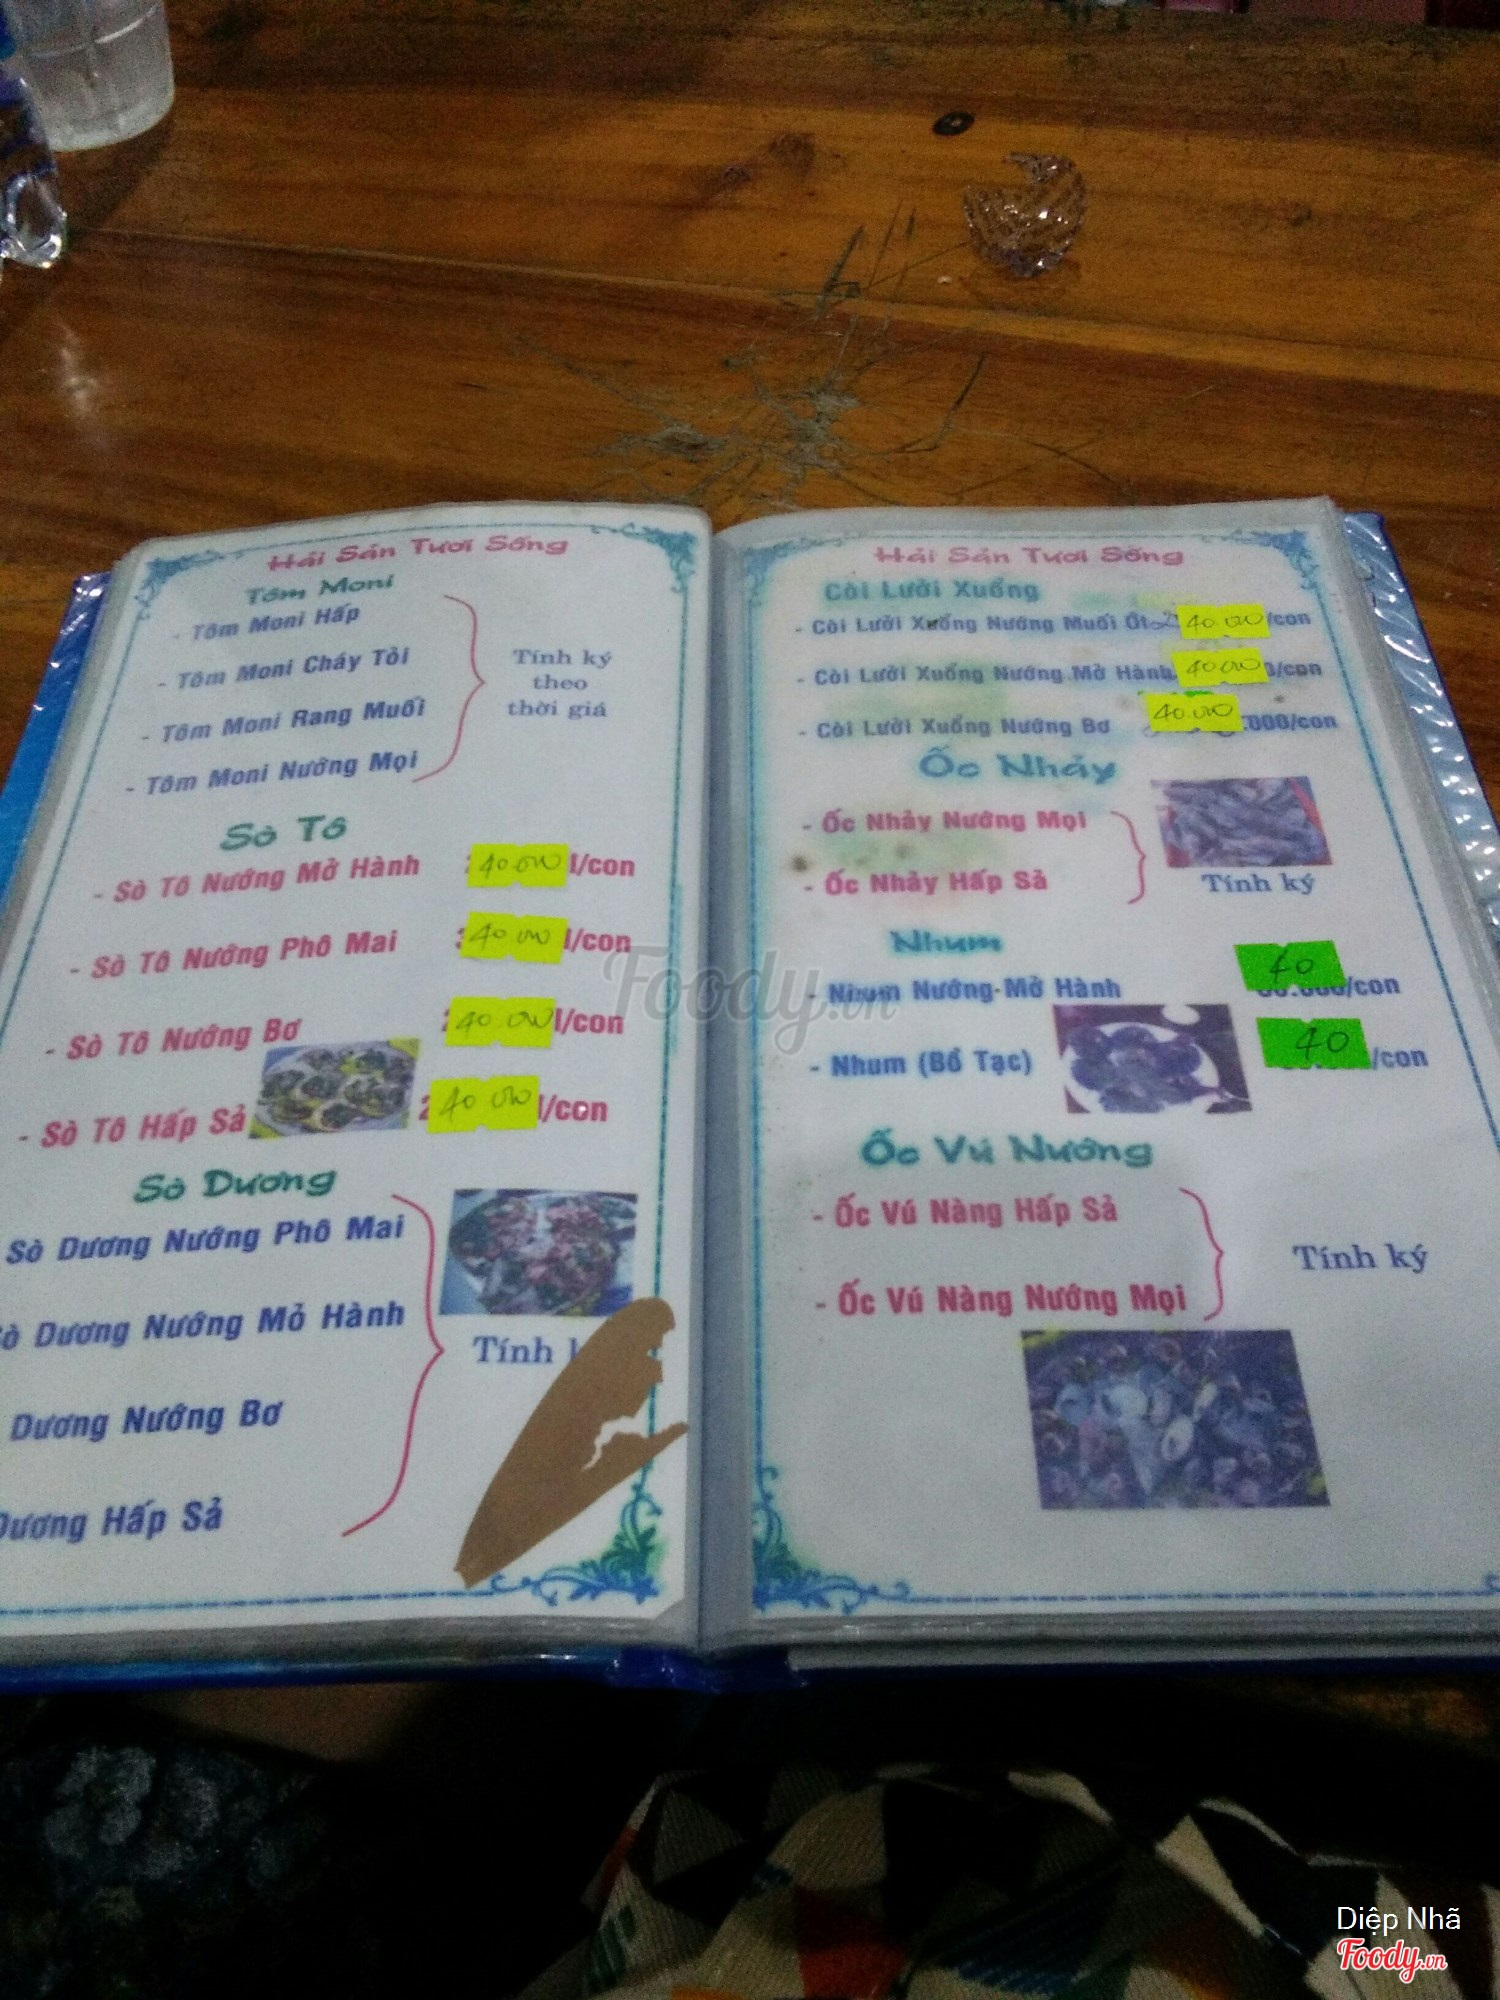 Hải Sản Tươi Sống
Tôm Moni
- Tôm Moni Hấp
- Tôm Moni Cháy Tỏi
- Tôm Moni Rang Muối
- Tôm Moni Nướng Mọi
Tính ký
theo
thời giá
Sò Tô
- Sò Tô Nướng Mở Hành 40.000 /con
- Sò Tô Nướng Phô Mai 40.000 /con
- Sò Tô Nướng Bơ 40.000 /con
- Sò Tô Hấp Sả 40.000 /con
Sò Dương
Sò Dương Nướng Phô Mai
Dương Nướng Mỏ Hành
Dương Nướng Bơ
Dương Hấp Sả
Tính
Hải Sản Tươi Sống
Còi Lưởi Xuổng
- Còi Lưởi Xuổng Nướng Muối Ớt 40.000 /con
- Còi Lưởi Xuổng Nướng Mở Hành 40.000 /con
- Còi Lưởi Xuổng Nướng Bơ 40.000 .000/con
Ốc Nhảy
- Ốc Nhảy Nướng Mọi
- Ốc Nhảy Hấp Sả
Tính ký
Nhum
- Nhum Nướng Mở Hành 40 /con
- Nhum (Bổ Tạc) 40 /con
Ốc Vú Nướng
- Ốc Vú Nàng Hấp Sả
- Ốc Vú Nàng Nướng Mọi
Tính ký
Foody.vn
Diệp Nhã
Foody.vn